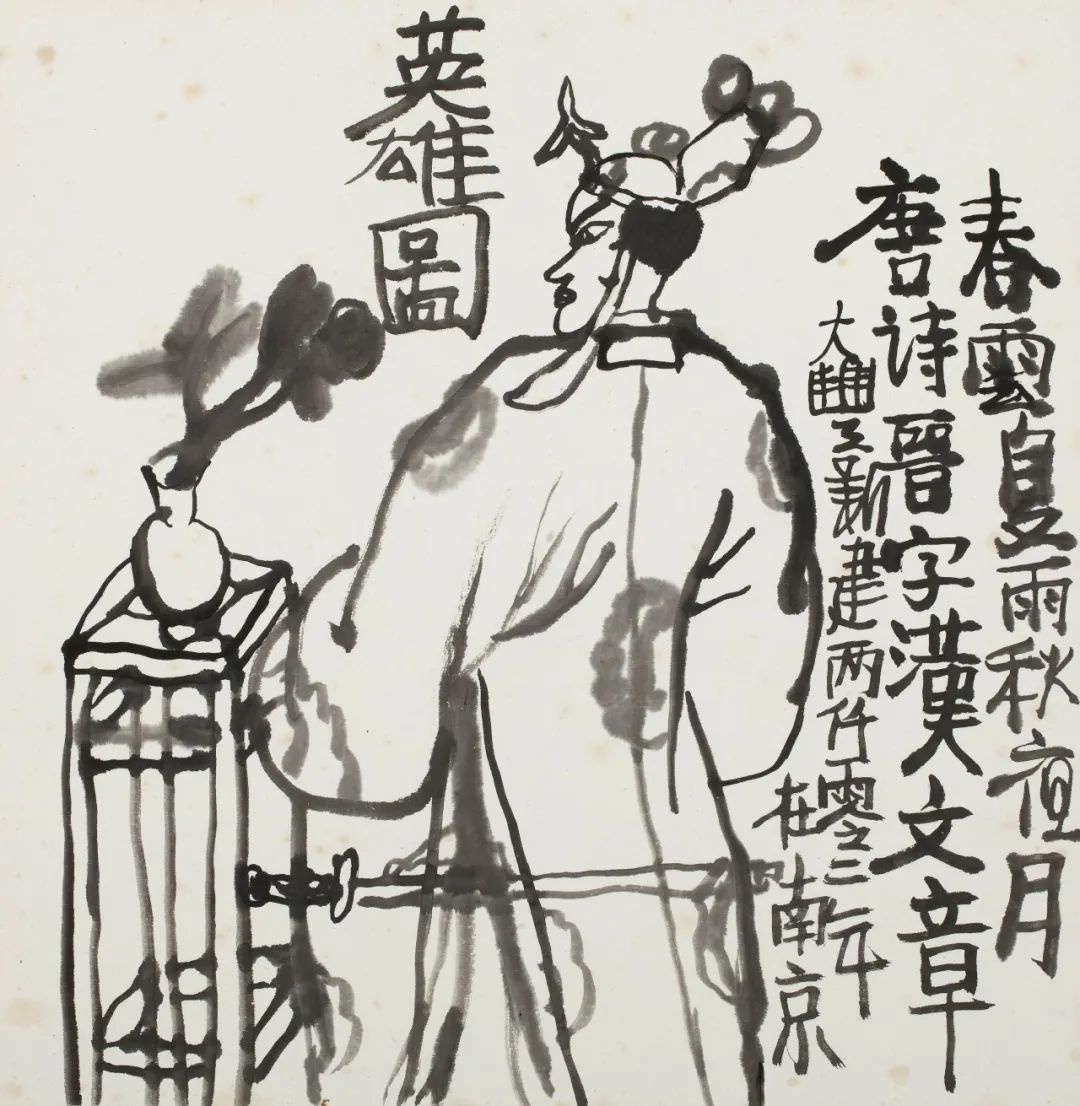 春雲夏雨秋夜月
唐诗晉字漢文章
大豐新建两仟零之二年
在南京
英雄圖